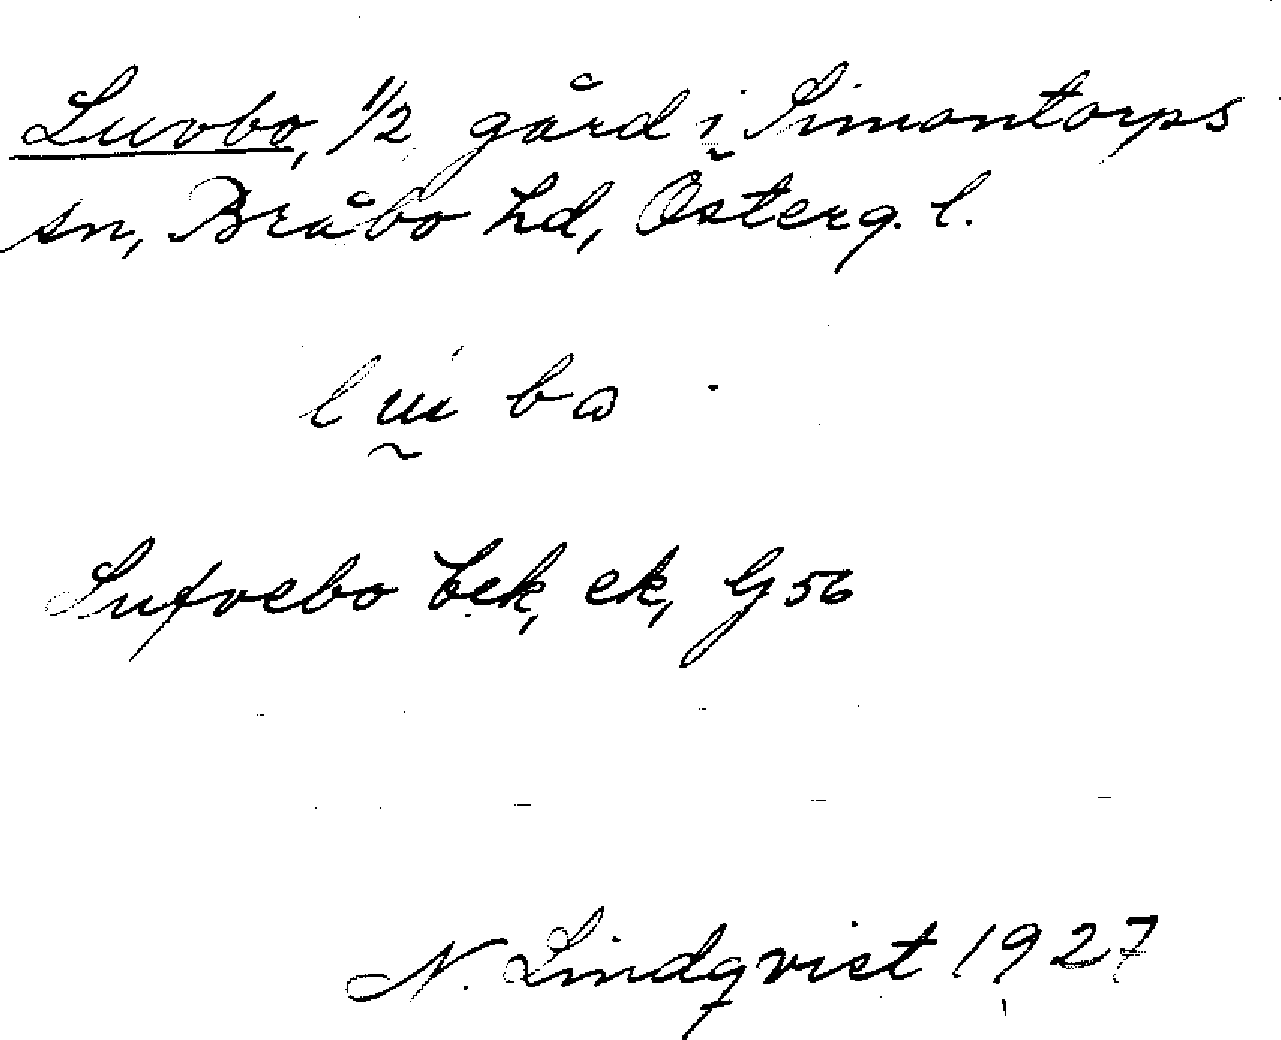 Luvbo, 1/2 gård i Simontorps
sn, Bråbo hd, Österg. l.
Lufvebo bek, ek, Gj 56
N. Lindqvist 1927